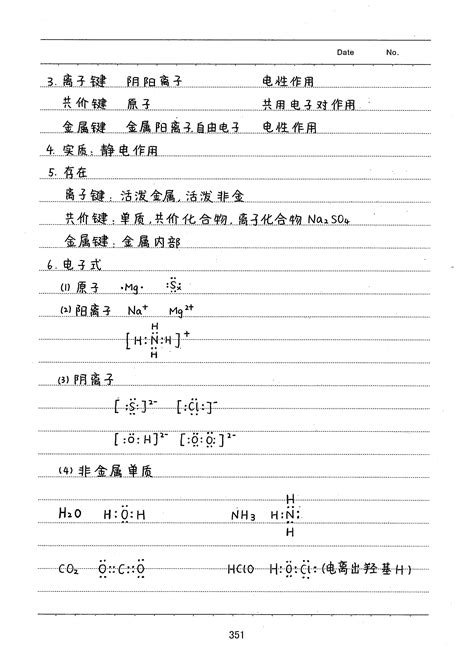 Date No.
3. 离子键 阴阳离子 电性作用
共价键 原子 共用电子对作用
金属键 金属阳离子.自由电子 电性作用
4. 实质：静电作用
5. 存在
离子键：活泼金属,活泼非金
共价键：单质,共价化合物,离子化合物 Na₂SO₄
金属键：金属内部
6. 电子式
(1) 原子 ·Mg· :S:
(2) 阳离子 Na⁺ Mg²⁺
H
[H:N:H]⁺
H
(3) 阴离子
[:S:]²⁻ [:Cl:]⁻
[:O:H]²⁻ [:O:O:]²⁻
(4) 非金属单质
H
H₂O H:O:H NH₃ H:N:
H
CO₂ O::C::O HClO H:O:Cl: (电离出羟基H)
351